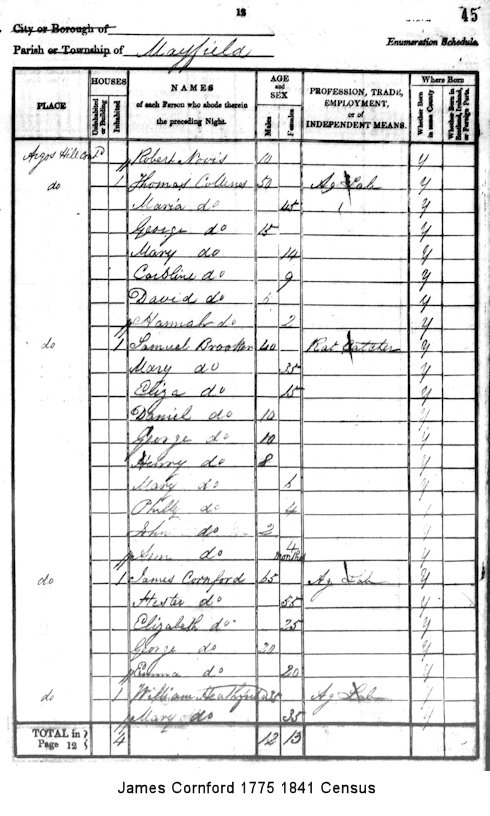 12
45
City or Borough of
Parish or Township of Mayfield
Enumeration Schedule.
PLACE
HOUSES
Uninhabited or Building
Inhabited
NAMES
of each Person who abode therein
the preceding Night.
AGE
and
SEX
Males
Females
PROFESSION, TRADE,
EMPLOYMENT,
or of
INDEPENDENT MEANS.
Where Born
Whether Born in same County
Whether Born in Scotland, Ireland, or Foreign Parts.
Argos Hill Robert Novis 10 y
do 1 Thomas Collens 50 Ag Lab y
Maria do 45 y
George do 15 y
Mary do 14 y
Caroline do 9 y
David do y
Hannah do 2 y
do 1 Samuel Brooker 40 Rat y
Mary do 35 y
Eliza do 15 y
Daniel do 10 y
George do 10 y
Henry do 8 y
Mary do y
Philly do 4
John do 2 y
Ann do 4 months y
do 1 James Cornford 65 Ag Lab y
Hester do 55 y
Elizabeth do 25 y
George do 20 y
Emma do 20 y
do 1 William 35 Ag Lab
Mary do 35 y
TOTAL in
Page 12
4 12 13
James Cornford 1775 1841 Census